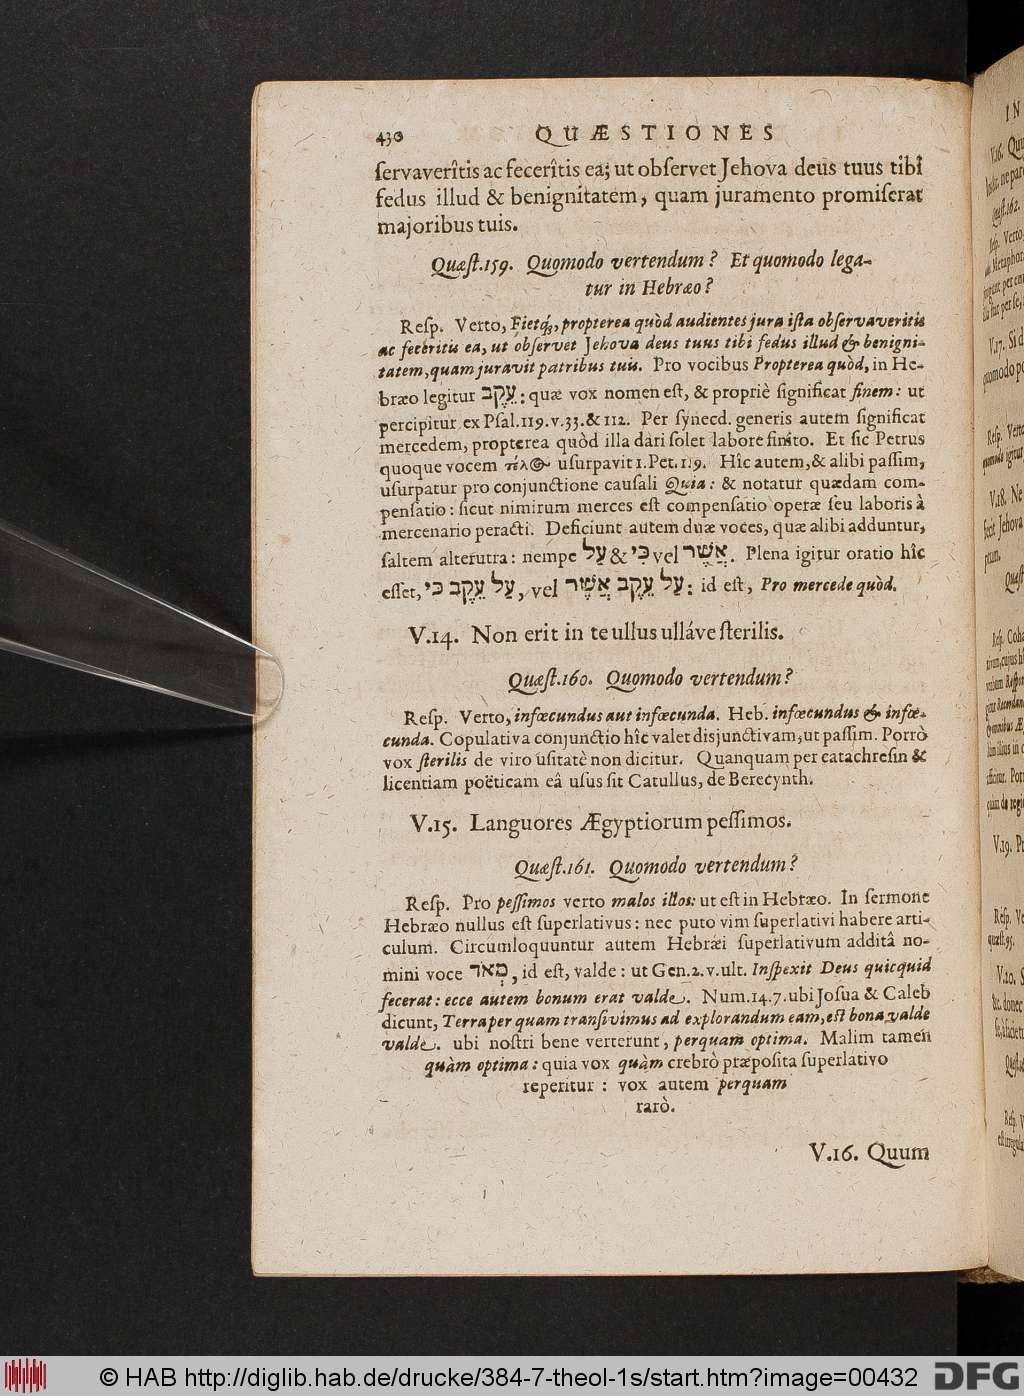 430 QUÆSTIONES
ſervaverîtis ac fecerîtis ea; ut obſervet Jehova deus tuus tibi
fedus illud & benignitatem, quam juramento promiſerat
majoribus tuis.
Quæſt.159. Quomodo vertendum? Et quomodo lega-
tur in Hebræo?
Reſp. Verto, Fietq́;, propterea quòd audientes jura iſta obſervaveritis
ac feceritis ea, ut obſervet Jehova deus tuus tibi fedus illud & benigni-
tatem, quam juravit patribus tuis. Pro vocibus Propterea quòd, in He-
bræo legitur עֵקֶב: quæ vox nomen eſt, & propriè ſignificat finem: ut
percipitur ex Pſal.119.v.33.& 112. Per ſynecd. generis autem ſignificat
mercedem, propterea quòd illa dari ſolet labore finito. Et ſic Petrus
quoque vocem τέλος uſurpavit 1.Pet.1.9. Hîc autem, & alibi paſſim,
uſurpatur pro conjunctione cauſali Quia: & notatur quædam com-
penſatio: ſicut nimirum merces eſt compenſatio operæ ſeu laboris à
mercenario peracti. Deficiunt autem duæ voces, quæ alibi adduntur,
ſaltem alterutra: nempe עַל & כִּי vel אֲשֶׁר. Plena igitur oratio hîc
eſſet, עַל עֵקֶב כִּי, vel עַל עֵקֶב אֲשֶׁר: id eſt, Pro mercede quòd.
V.14. Non erit in te ullus ulláve ſterilis.
Quæſt.160. Quomodo vertendum?
Reſp. Verto, infœcundus aut infœcunda. Heb. infœcundus & infœ-
cunda. Copulativa conjunctio hîc valet disjunctivam, ut paſſim. Porrò
vox ſterilis de viro uſitatè non dicitur. Quanquam per catachreſin &
licentiam poëticam eâ uſus ſit Catullus, de Berecynth.
V.15. Languores Ægyptiorum peſſimos.
Quæſt.161. Quomodo vertendum?
Reſp. Pro peſſimos verto malos illos: ut eſt in Hebræo. In ſermone
Hebræo nullus eſt ſuperlativus: nec puto vim ſuperlativi habere arti-
culum. Circumloquuntur autem Hebræi ſuperlativum additâ no-
mini voce מְאֹד, id eſt, valde: ut Gen.2.v.ult. Inſpexit Deus quicquid
fecerat: ecce autem bonum erat valde. Num.14.7.ubi Joſua & Caleb
dicunt, Terra per quam tranſivimus ad explorandum eam, eſt bona valde
valde. ubi noſtri bene verterunt, perquam optima. Malim tamen
quàm optima: quia vox quàm crebrò præpoſita ſuperlativo
reperitur: vox autem perquam
rarò.
V.16. Quum
IN
V.16. Quu
Quæſt.162.
Reſp. Verto
Metaphor
V.17. Si d
quomodo po
Reſp. Verto
V.18. Ne
fecit Jehova
Quæſt
Reſp. Coha
V.19. Pr
Reſp. Ve
quæſt.95.
V.20. S
&c. donec
Reſp. V
© HAB http://diglib.hab.de/drucke/384-7-theol-1s/start.htm?image=00432
DFG